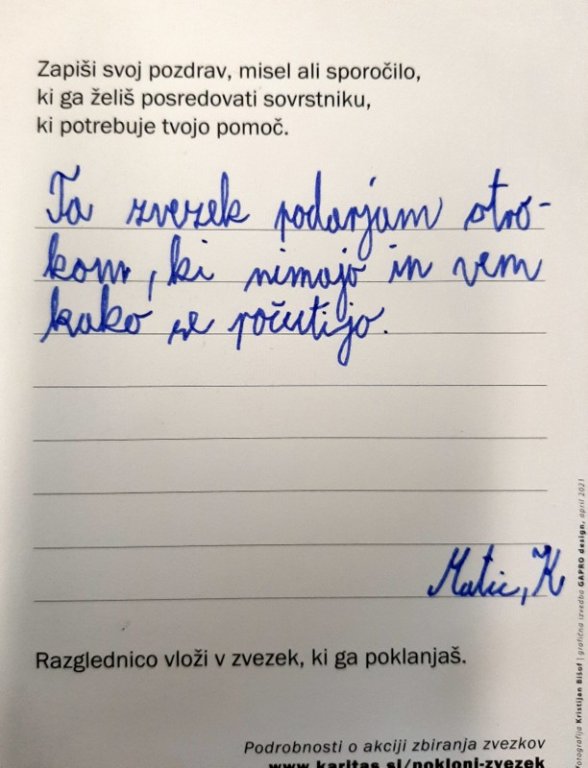 Zapiši svoj pozdrav, misel ali sporočilo,
ki ga želiš posredovati sovrstniku,
ki potrebuje tvojo pomoč.
Ta zvezek podarjam otro-
kom, ki nimajo in vem
kako se počutijo.
Matic, K
Razglednico vloži v zvezek, ki ga poklanjaš.
Podrobnosti o akciji zbiranja zvezkov
www.karitas.si/pokloni-zvezek
fotografija Kristijan Bišof | grafična izvedba GAPRO design, april 2021